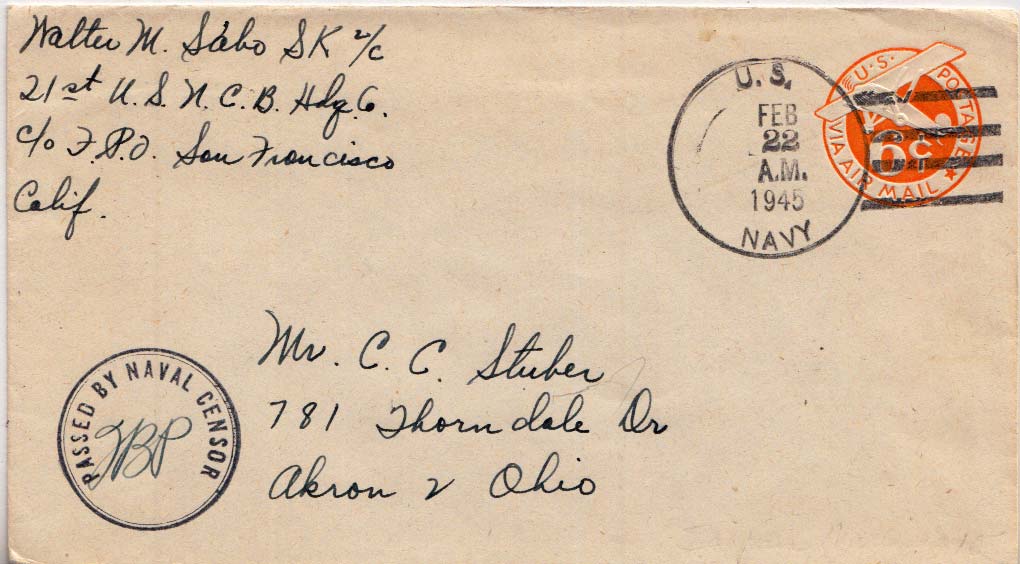 Walter M. Sabo SK 2/c
21st U.S.N.C.B. Hdq. C.
c/o F.P.O. San Francisco
Calif.
U.S.
FEB
22
A.M.
1945
NAVY
U.S. POSTAGE
6¢
VIA AIR MAIL
Mr. C. C. Stuber
781 Thorndale Dr
Akron 2 Ohio
PASSED BY NAVAL CENSOR